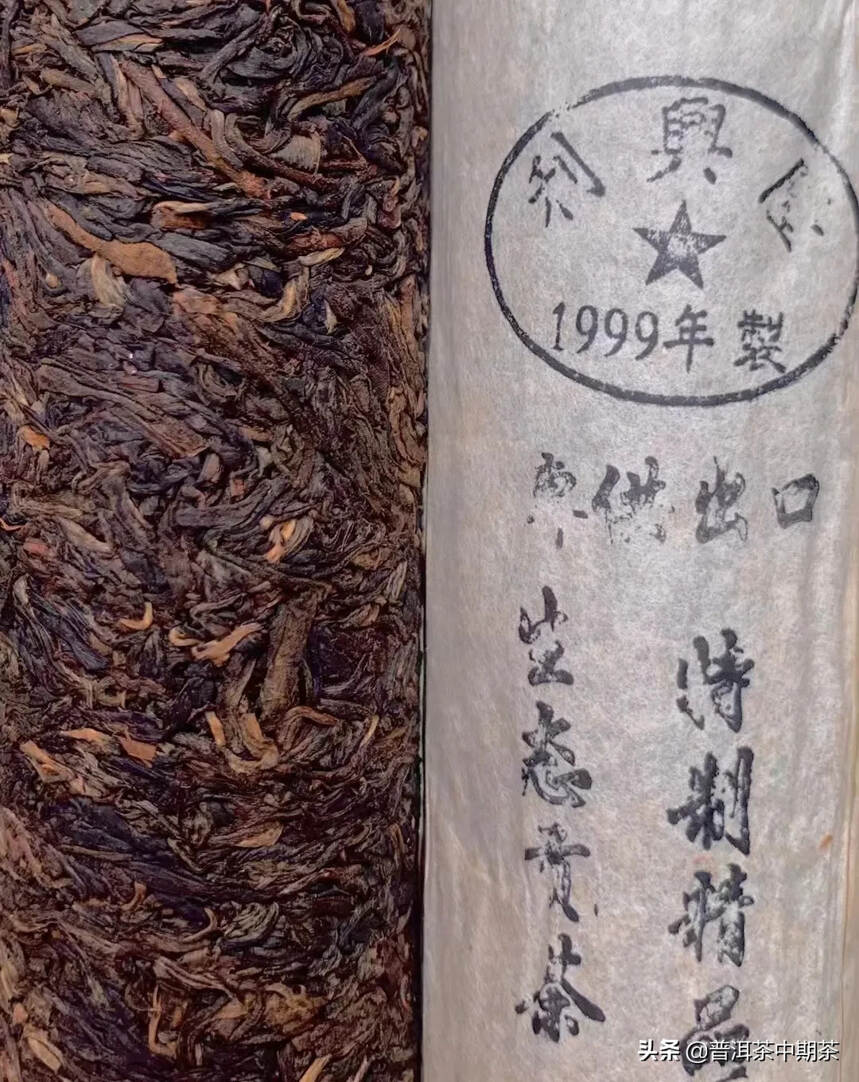 利興
1999年製
供出口
特制精品
生态贡茶
头条 @普洱茶中期茶